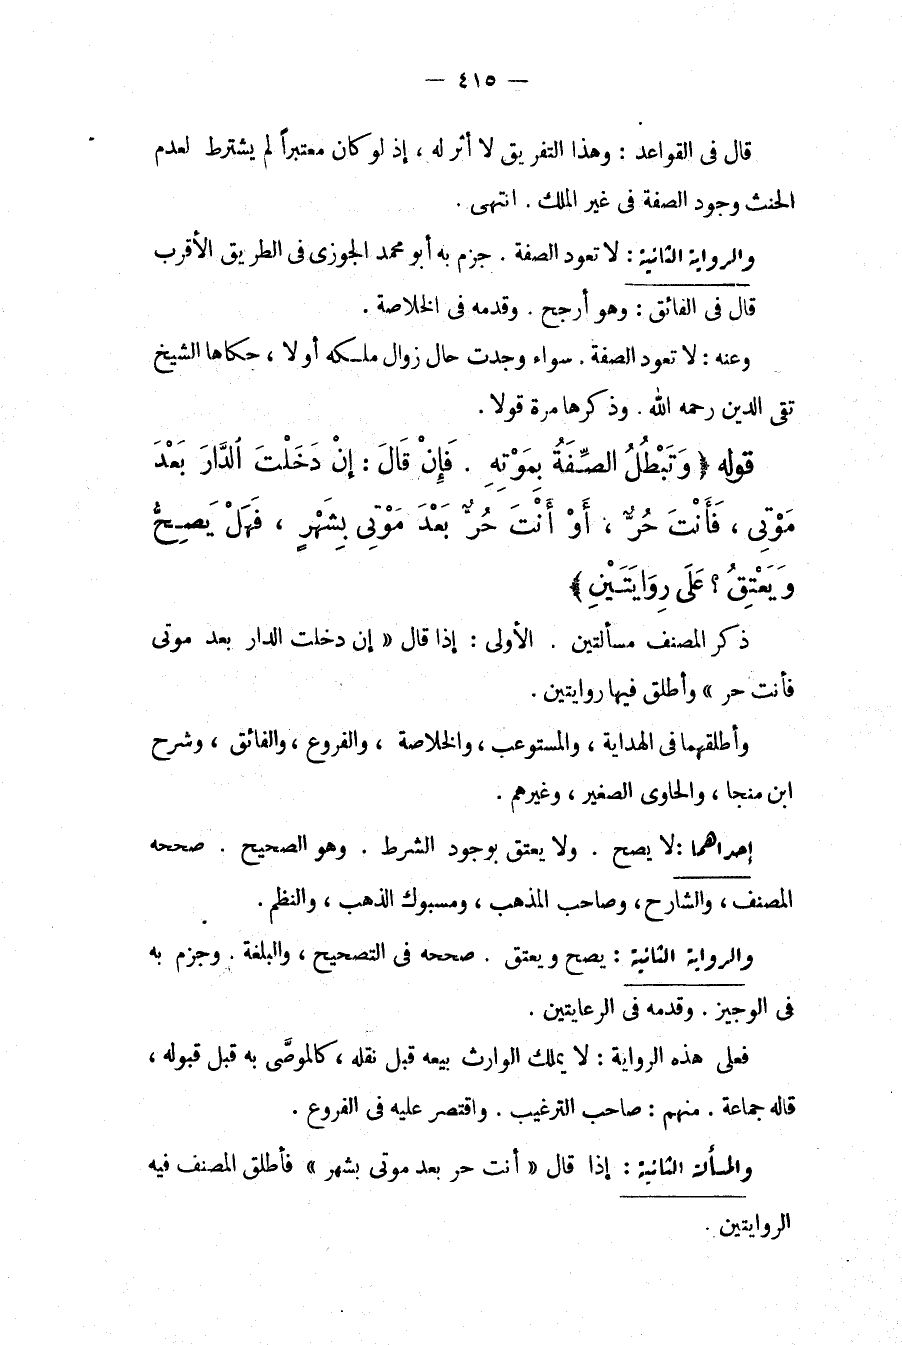 — ٤١٥ —
قال فى القواعد : وهذا التفريق لا أثر له ، إذ لو كان معتبراً لم يشترط لعدم
الحنث وجود الصفة فى غير الملك . انتهى .
والرواية الثانية : لا تعود الصفة . جزم به أبو محمد الجوزى فى الطريق الأقرب
قال فى الفائق : وهو أرجح . وقدمه فى الخلاصة .
وعنه : لا تعود الصفة . سواء وجدت حال زوال ملكه أو لا ، حكاها الشيخ
تقى الدين رحمه الله . وذكرها مرة قولا .
قوله ﴿ وَتَبْطُلُ الصِّفَةُ بِمَوْتِهِ . فَإِنْ قَالَ : إِنْ دَخَلْتَ الدَّارَ بَعْدَ
مَوْتِى ، فَأَنْتَ حُرٌّ ، أَوْ أَنْتَ حُرٌّ بَعْدَ مَوْتِى بِشَهْرٍ ، فَهَلْ يَصِحُّ
وَيَعْتِقُ ؟ عَلَى رِوَايَتَيْنِ ﴾
ذكر المصنف مسألتين . الأولى : إذا قال « إن دخلت الدار بعد موتى
فأنت حر » وأطلق فيها روايتين .
وأطلقهما فى الهداية ، والمستوعب ، والخلاصة ، والفروع ، والفائق ، وشرح
ابن منجا ، والحاوى الصغير ، وغيرهم .
إحداهما : لا يصح . ولا يعتق بوجود الشرط . وهو الصحيح . صححه
المصنف ، والشارح ، وصاحب المذهب ، ومسبوك الذهب ، والنظم .
والرواية الثانية : يصح ويعتق . صححه فى التصحيح ، والبلغة . وجزم به
فى الوجيز . وقدمه فى الرعايتين .
فعلى هذه الرواية : لا يملك الوارث بيعه قبل نقله ، كالموصَّى به قبل قبوله ،
قاله جماعة . منهم : صاحب الترغيب . واقتصر عليه فى الفروع .
والمسألة الثانية : إذا قال « أنت حر بعد موتى بشهر » فأطلق المصنف فيه
الروايتين .